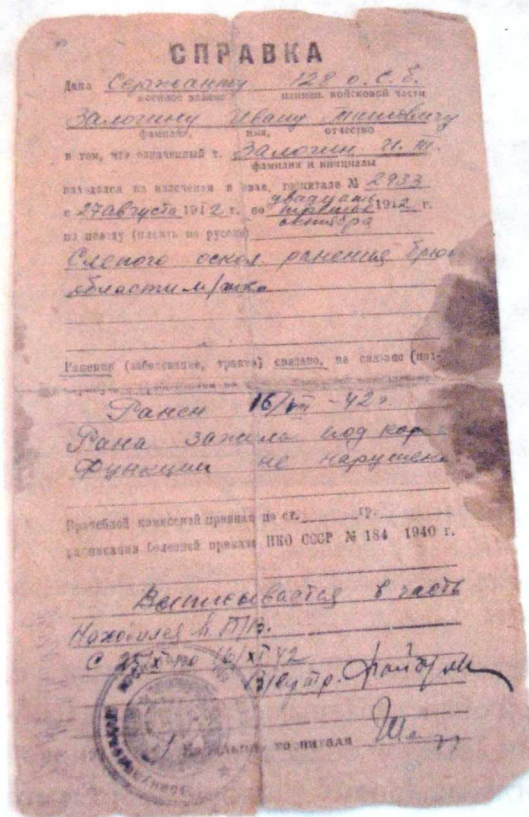 СПРАВКА
Дана Сержанту 128 о.С.б.
военное звание наимен. войсковой части
Залогину Ивану
фамилия, имя, отчество
в том, что означенный т. Залогин И.
фамилия и инициалы
находился на излечении в эвак. госпитале № 2933
с 27 августа 1942 г. по двадцать третье 1942 г.
октября
по поводу (писать по русски)
Слепого оскол. ранения
области м/таза
Ранение (заболевание, травма) связано, не связано (под-
Ранен 16/VIII-42 г
Рана зажила под кор
Функции не нарушен
Врачебной комиссией признан по ст. гр.
расписания болезней приказа НКО СССР № 184 1940 г.
Выписывается в часть
Находился в
С по 16/XI 42
Начальник госпиталя